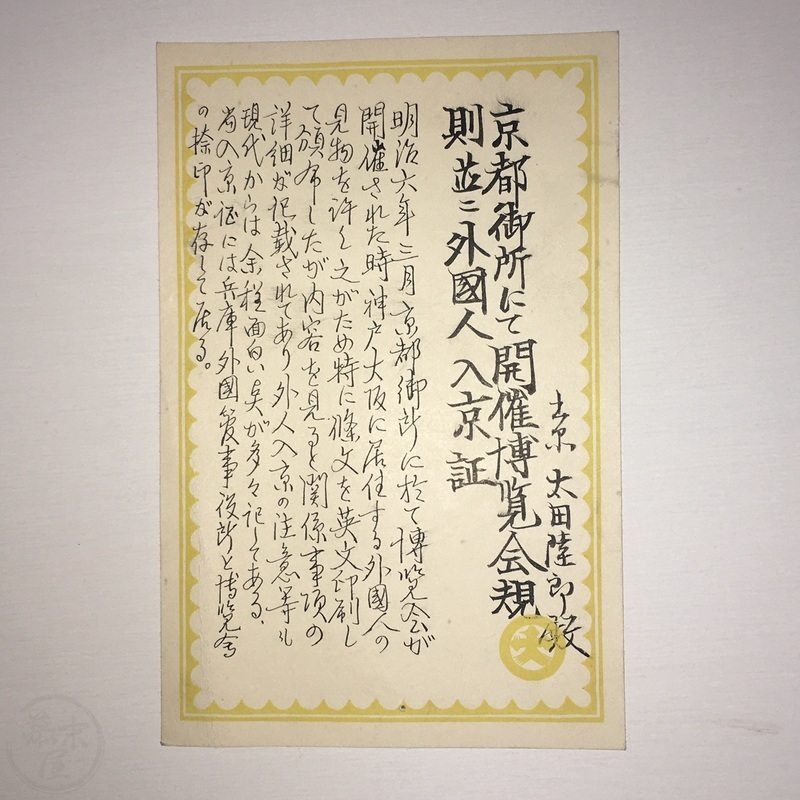 京都御所にて開催博覧会規
則並ニ外國人入京証
東京 太田陸郎殿
明治六年三月京都御所に於て博覧会が
開催された時神戸大阪に居住する外國人の
見物を許し之がため特に條文を英文印刷し
て頒布したが内容を見ると関係事項の
詳細が記載されてあり外人入京の注意等も
現代からは余程面白い点が多々記してある、
尚入京証には兵庫外國管事役所と博覧会
の捺印が存して居る。
大